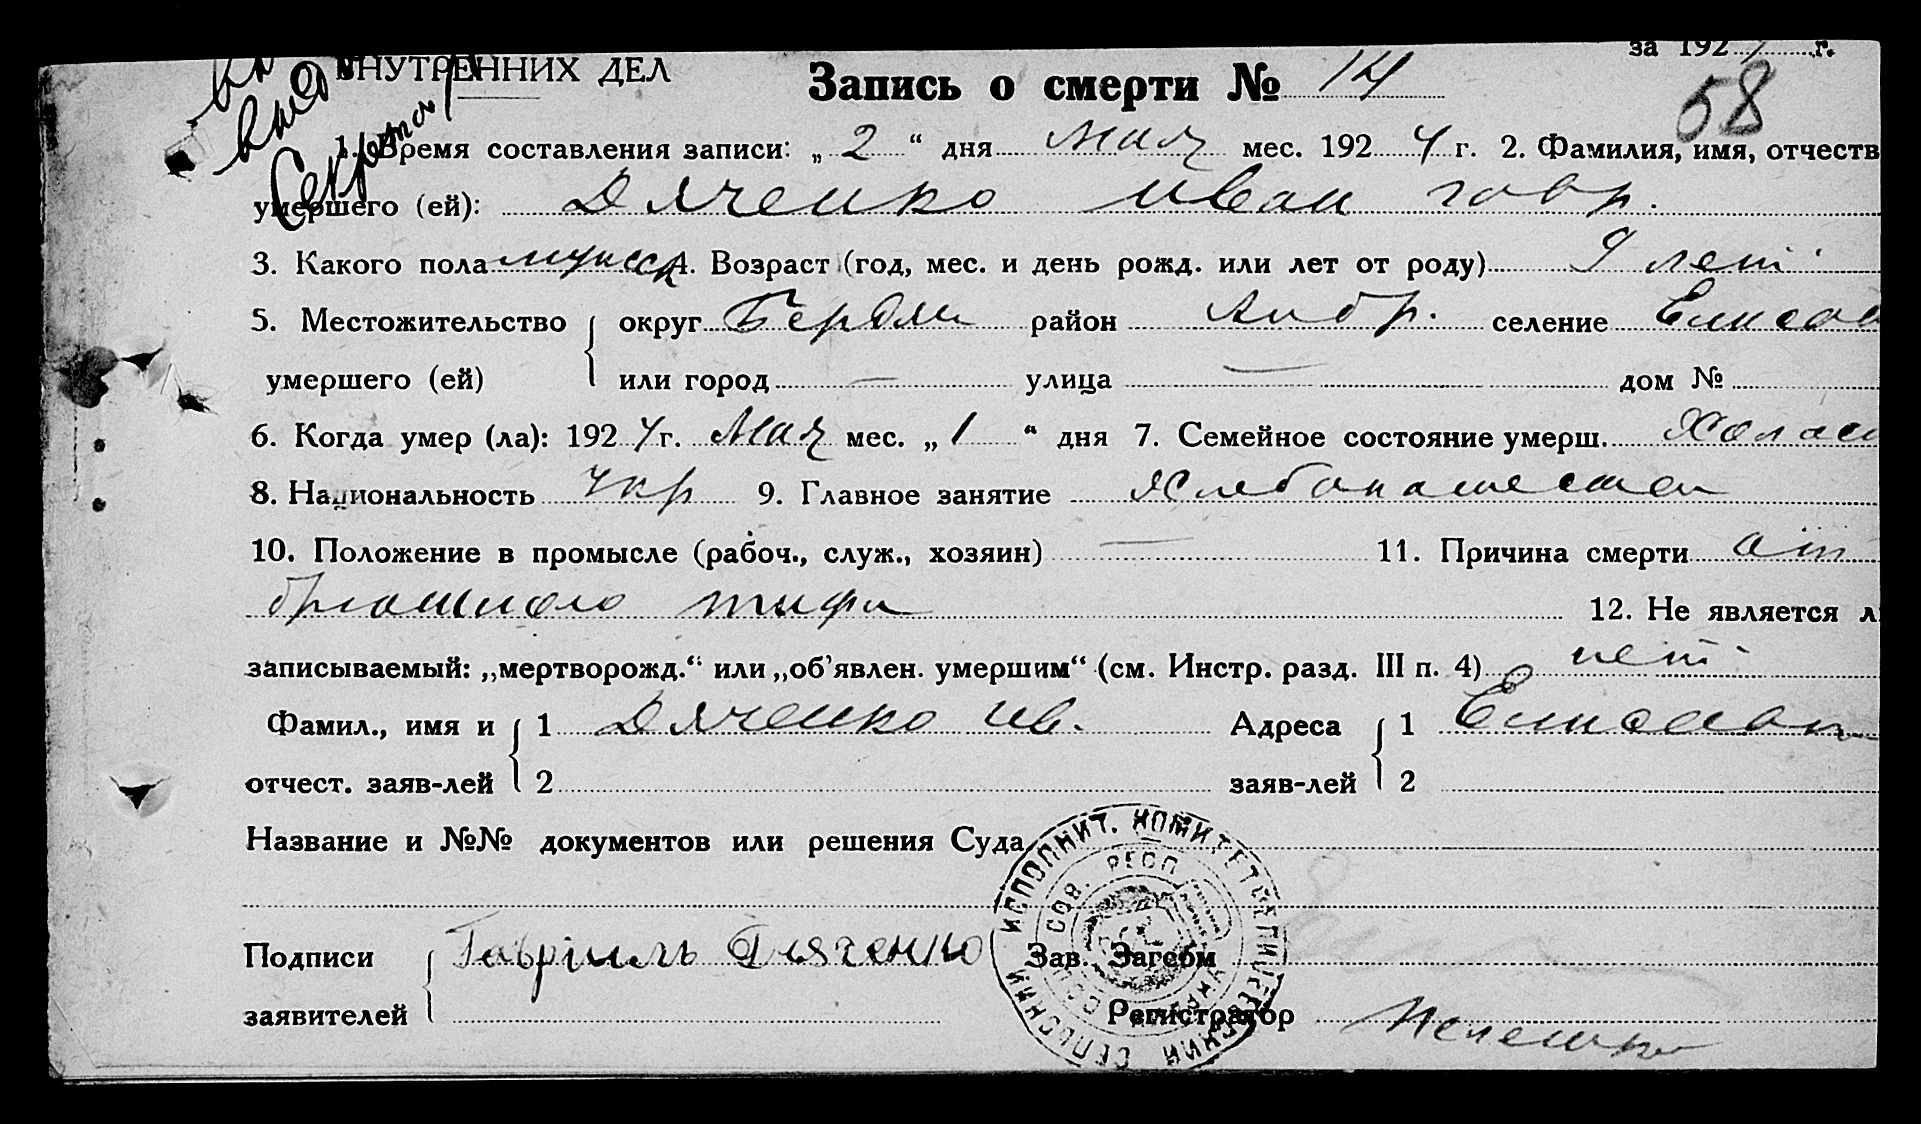 за 1924 г.
ВНУТРЕННИХ ДЕЛ
Запись о смерти № 14
58
Секретарь
1. Время составления записи: „ 2 “ дня мая мес. 1924 г. 2. Фамилия, имя, отчеств
умершего (ей): Дяченко Иван Гавр.
3. Какого пола мужск 4. Возраст (год, мес. и день рожд. или лет от роду) 9 лет
5. Местожительство округ Бердян район Андр. селение Елисав
умершего (ей) или город — улица — дом №
6. Когда умер (ла): 1924 г. Мая мес. „ 1 “ дня 7. Семейное состояние умерш. Холост
8. Национальность Укр 9. Главное занятие Хлебопашество
10. Положение в промысле (рабоч., служ., хозяин) — 11. Причина смерти от
брюшного тифа 12. Не является л
записываемый: „мертворожд.“ или „об’явлен. умершим“ (см. Инстр. разд. III п. 4) нет
Фамил., имя и 1 Дяченко Ив. Адреса 1 Елисавет
отчест. заяв-лей 2 заяв-лей 2
Название и №№ документов или решения Суда
Подписи Гавриилъ Дяченко Зав. Загсом
заявителей Регистратор
ИСПОЛНИТ. КОМИТЕТ
СОВ. РЕСП.
СЕЛЬСКИЙ